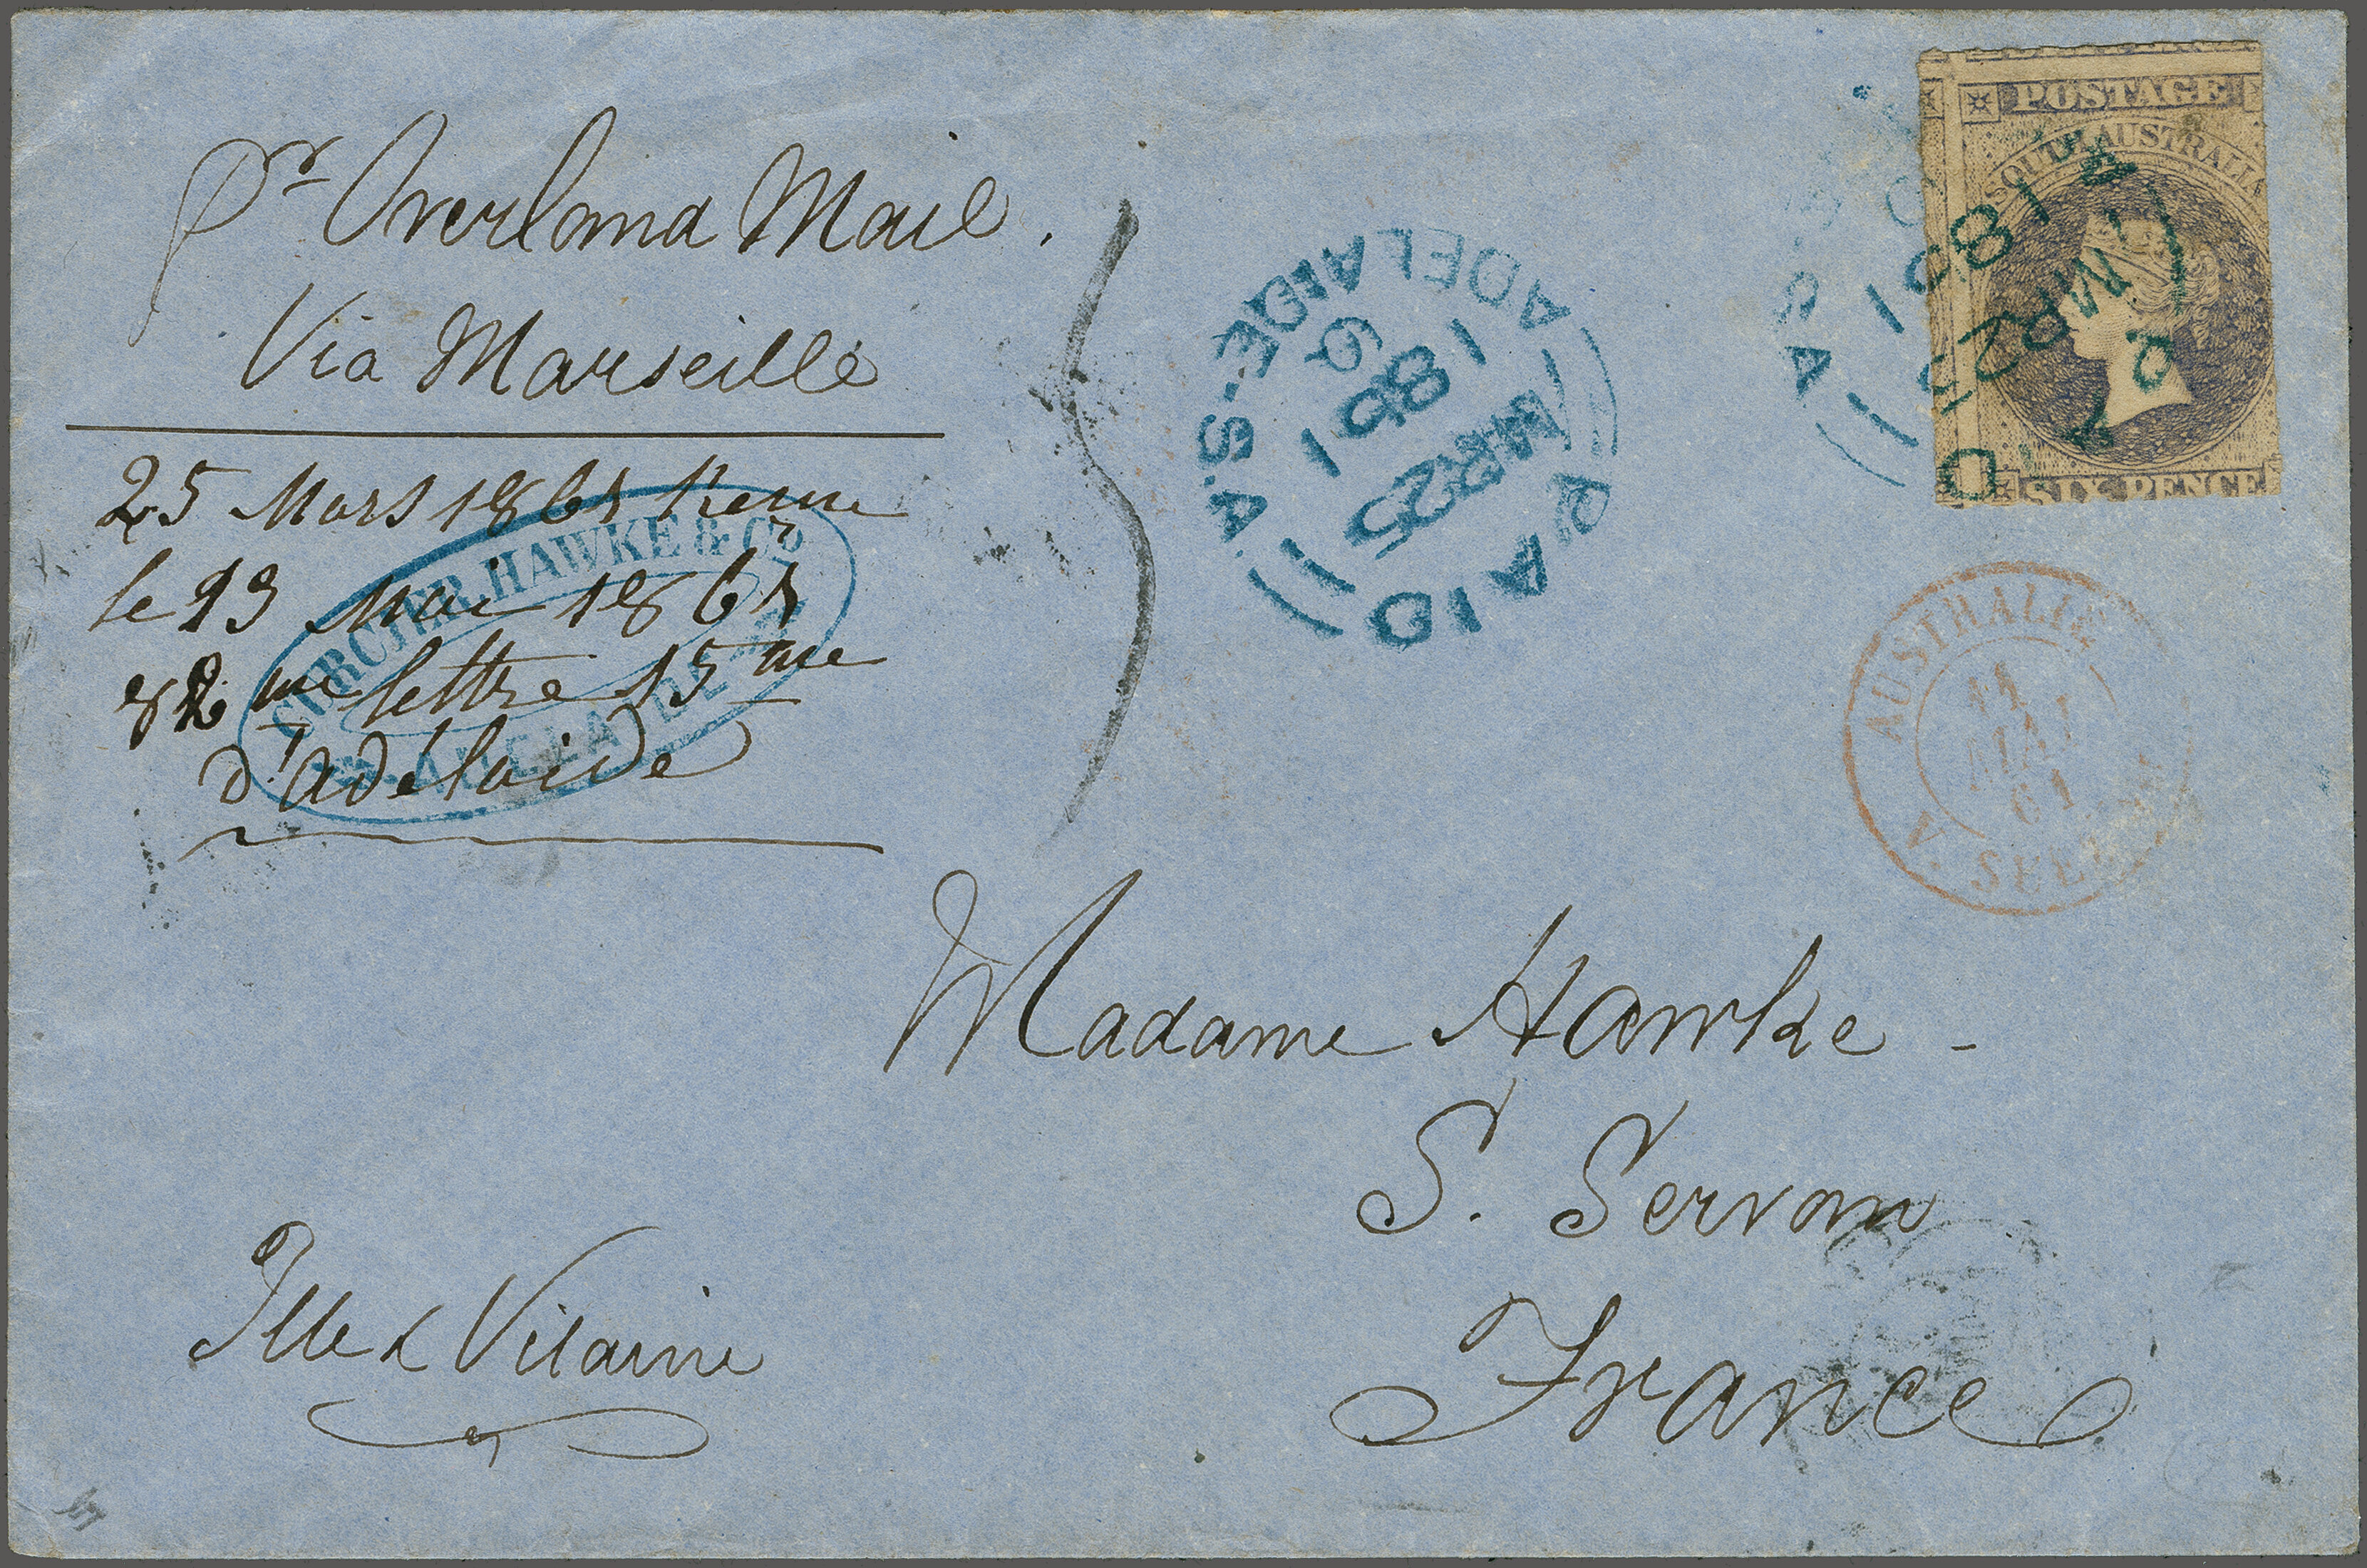 pr Overland Mail.
Via Marseille
25 Mars 1861 Recue
le 13 Mai 1861
82me lettre 15me
d'adelaide
CURCIER, HAWKE & Co
ADELAIDE
PAID
ADELAIDE-S.A.
MR 25
1861
POSTAGE
SOUTH AUSTRALIA
SIX PENCE
PAID
S.A.
MR 25
1861
AUSTRALIE
11
MAI
61
V. SUEZ
Madame Hawke -
S. Servan
France
Ille & Vilaine